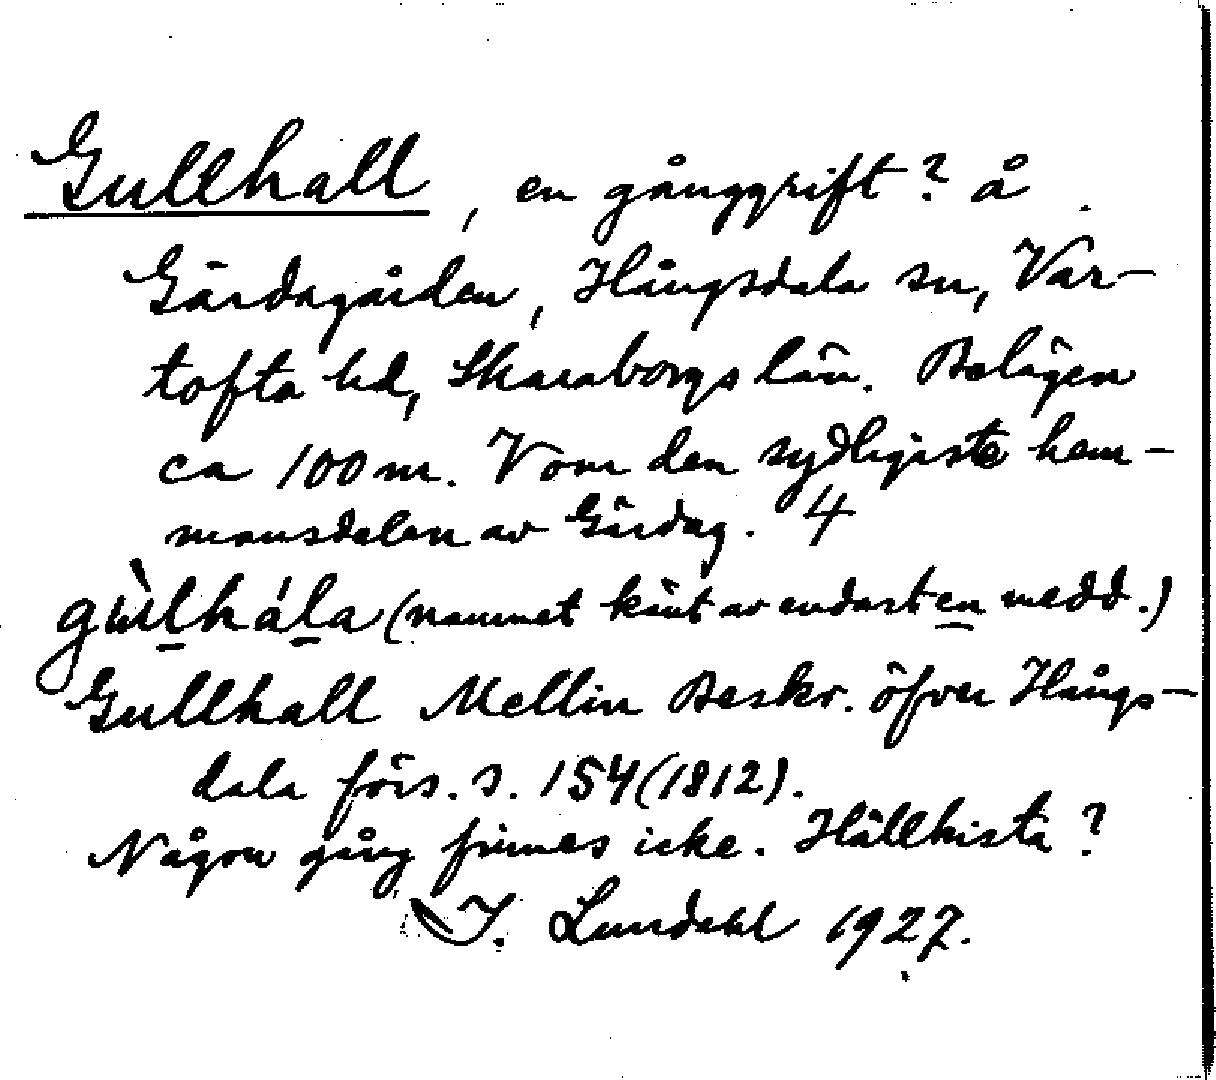 Gullhall, en gånggrift? å
Gärdagården, Hångsdala sn, Var-
tofta hd, Skaraborgs län. Belägen
ca 100 m. V om den sydligaste hem-
mansdelen av Gärdag. 4
gùlhála (namnet känt av endast en medd.)
Gullhall Mellin Beskr. öfver Hångs-
dala förs. s. 154 (1812).
Någon gång finnes icke. Hällkista?
I. Lundahl 1927.